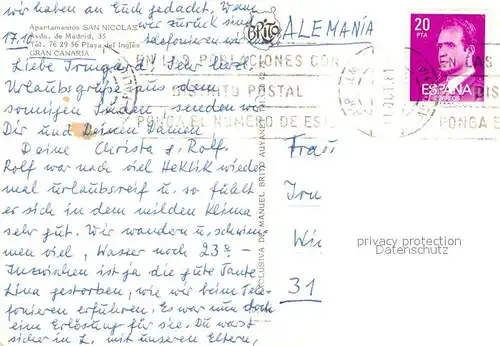 wir haben an Euch gedacht. Wenn
wir zurück sind
telefonieren wir
Apartamentos SAN NICOLAS
Avda. de Madrid, 35
Tel. 76 29 56 Playa del Inglés
GRAN CANARIA
17.10
BRITO
ALEMANIA
20
PTA
ESPAÑA
EN LAS POBLACIONES CON
DISTRITO POSTAL
PONGA EL NUMERO DE ES
Liebe Irmgard, sehr herzl.
Urlaubsgrüße aus dem
sonnigen Süden senden wir
Dir und Deinen Damen
Deine Christa u. Rolf.
Rolf war nach viel Hektik wieder
mal urlaubsreif u. so fühlt
er sich in dem milden Klima
sehr gut. Wir wandern u. schwim
men viel, Wasser noch 23° -
Inzwischen ist ja die gute Tante
Lina gestorben, wie wir beim Tele-
fonieren erfuhren. Es war nun doch
eine Erlösung für sie. Du warst
sicher in L. mit unseren Eltern,
EXCLUSIVA DE MANUEL BRITO AUYANET
Frau
Irm
Wi
31
privacy protection
Datenschutz